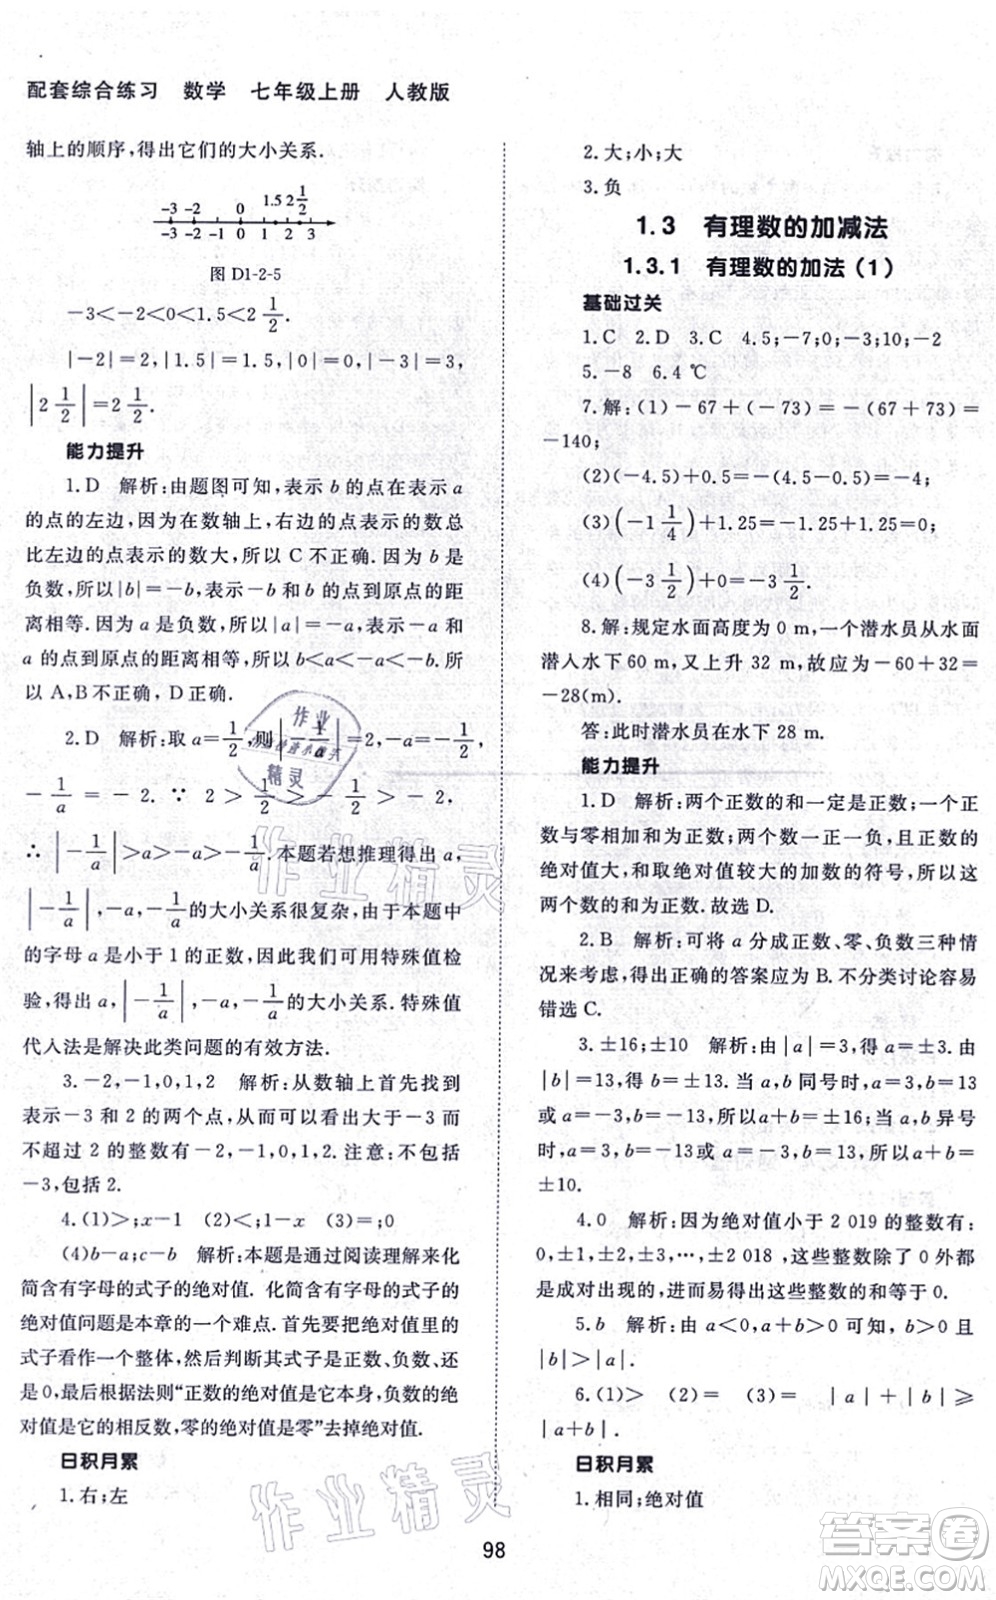 配套综合练习 数学 七年级上册 人教版
轴上的顺序,得出它们的大小关系.
-3 -2 0 1.5 2 2 1/2
-3 -2 -1 0 1 2 3
图 D1-2-5
-3<-2<0<1.5<2 1/2.
|-2|=2,|1.5|=1.5,|0|=0,|-3|=3,
|2 1/2|=2 1/2.
能力提升
1.D 解析:由题图可知,表示 b 的点在表示 a
的点的左边,因为在数轴上,右边的点表示的数总
比左边的点表示的数大,所以 C 不正确.因为 b 是
负数,所以|b|=-b,表示-b 的点到原点的距
离相等.因为 a 是负数,所以|a|=-a,表示-a 和
a 的点到原点的距离相等,所以 b<a<-a<-b.所
以 A,B 不正确,D 正确.
2.D 解析:取 a=1/2,则|-1/a|=2,-a=-1/2,
-1/a=-2.∵ 2>1/2>-1/2>-2,
∴|-1/a|>a>-a>-1/a.本题若想推理得出 a,
|-1/a|,-a,-1/a的大小关系很复杂,由于本题中
的字母 a 是小于 1 的正数,因而可用特殊值检
验,得出 a,|-1/a|,-a,-1/a的大小关系.特殊值
代入法是解决此类问题的有效方法.
3.-2,-1,0,1,2 解析:从数轴上首先找到
表示-3 和 2 的两个点,可以看出大于-3 而
不超过 2 的整数有-2,-1,0,1,2.注意:不包括
-3,包括 2.
4.(1)>;x-1 (2)<;1-x (3)=;0
(4)b-a;c-b 解析:本题是通过阅读理解来化
简含有字母的式子的绝对值. 化简含有字母的式子的
绝对值问题是本章的一个难点.首先要将绝对值里的
式子看作一个整体,然后判断式子是正数、负数、还
是 0,最后根据法则“正数的绝对值是它本身,负数的绝
对值是它的相反数,零的绝对值是零”去掉绝对值.
日积月累
1.右;左
2.大;小;大
3.负
1.3 有理数的加减法
1.3.1 有理数的加法(1)
基础过关
1.C 2.D 3.C 4.5;-7;0;-3;10;-2
5.-8 6.4 ℃
7.解:(1)-67+(-73)=-(67+73)=
-140;
(2)(-4.5)+0.5=-(4.5-0.5)=-4;
(3)(-1 1/4)+1.25=-1.25+1.25=0;
(4)(-3 1/2)+0=-3 1/2.
8.解:规定水面高度为 0 m,一个潜水员从水面
潜入水下 60 m,又上升 32 m,故应为-60+32=
-28(m).
答:此时潜水员在水下 28 m.
能力提升
1.D 解析:两个正数的和一定是正数;一个正
数与零相加和为正数;两个数一正一负,且正数的
绝对值大,和取绝对值较大的加数的符号,所以这
两个数的和为正数.故选 D.
2.B 解析:可将 a 分成正数、零、负数三种情
况来考虑,得出正确的答案应为 B.不分类讨论容易
错选 C.
3.±16;±10 解析:由|a|=3,得 a=±3.由
|b|=13,得 b=±13.当 a,b 同号时,a=3,b=13
或 a=-3,b=-13,所以 a+b=±16;当 a,b 异号
时,a=3,b=-13 或 a=-3,b=13,所以 a+b=
±10.
4.0 解析:因为绝对值小于 2 019 的整数有:
0,±1,±2,±3,…,±2 018,这些整数除了 0 外都
是成对出现的,进而易得出这些整数的和为 0.
5.b 解析:由 a<0,a+b>0 可知,b>0,且
|b|>|a|.
6.(1)> = = (2)= (3)> |a|+|b|≥
|a+b|
日积月累
1.相同;绝对值
98
作业精灵
作业精灵
答案圈
MXQE.COM